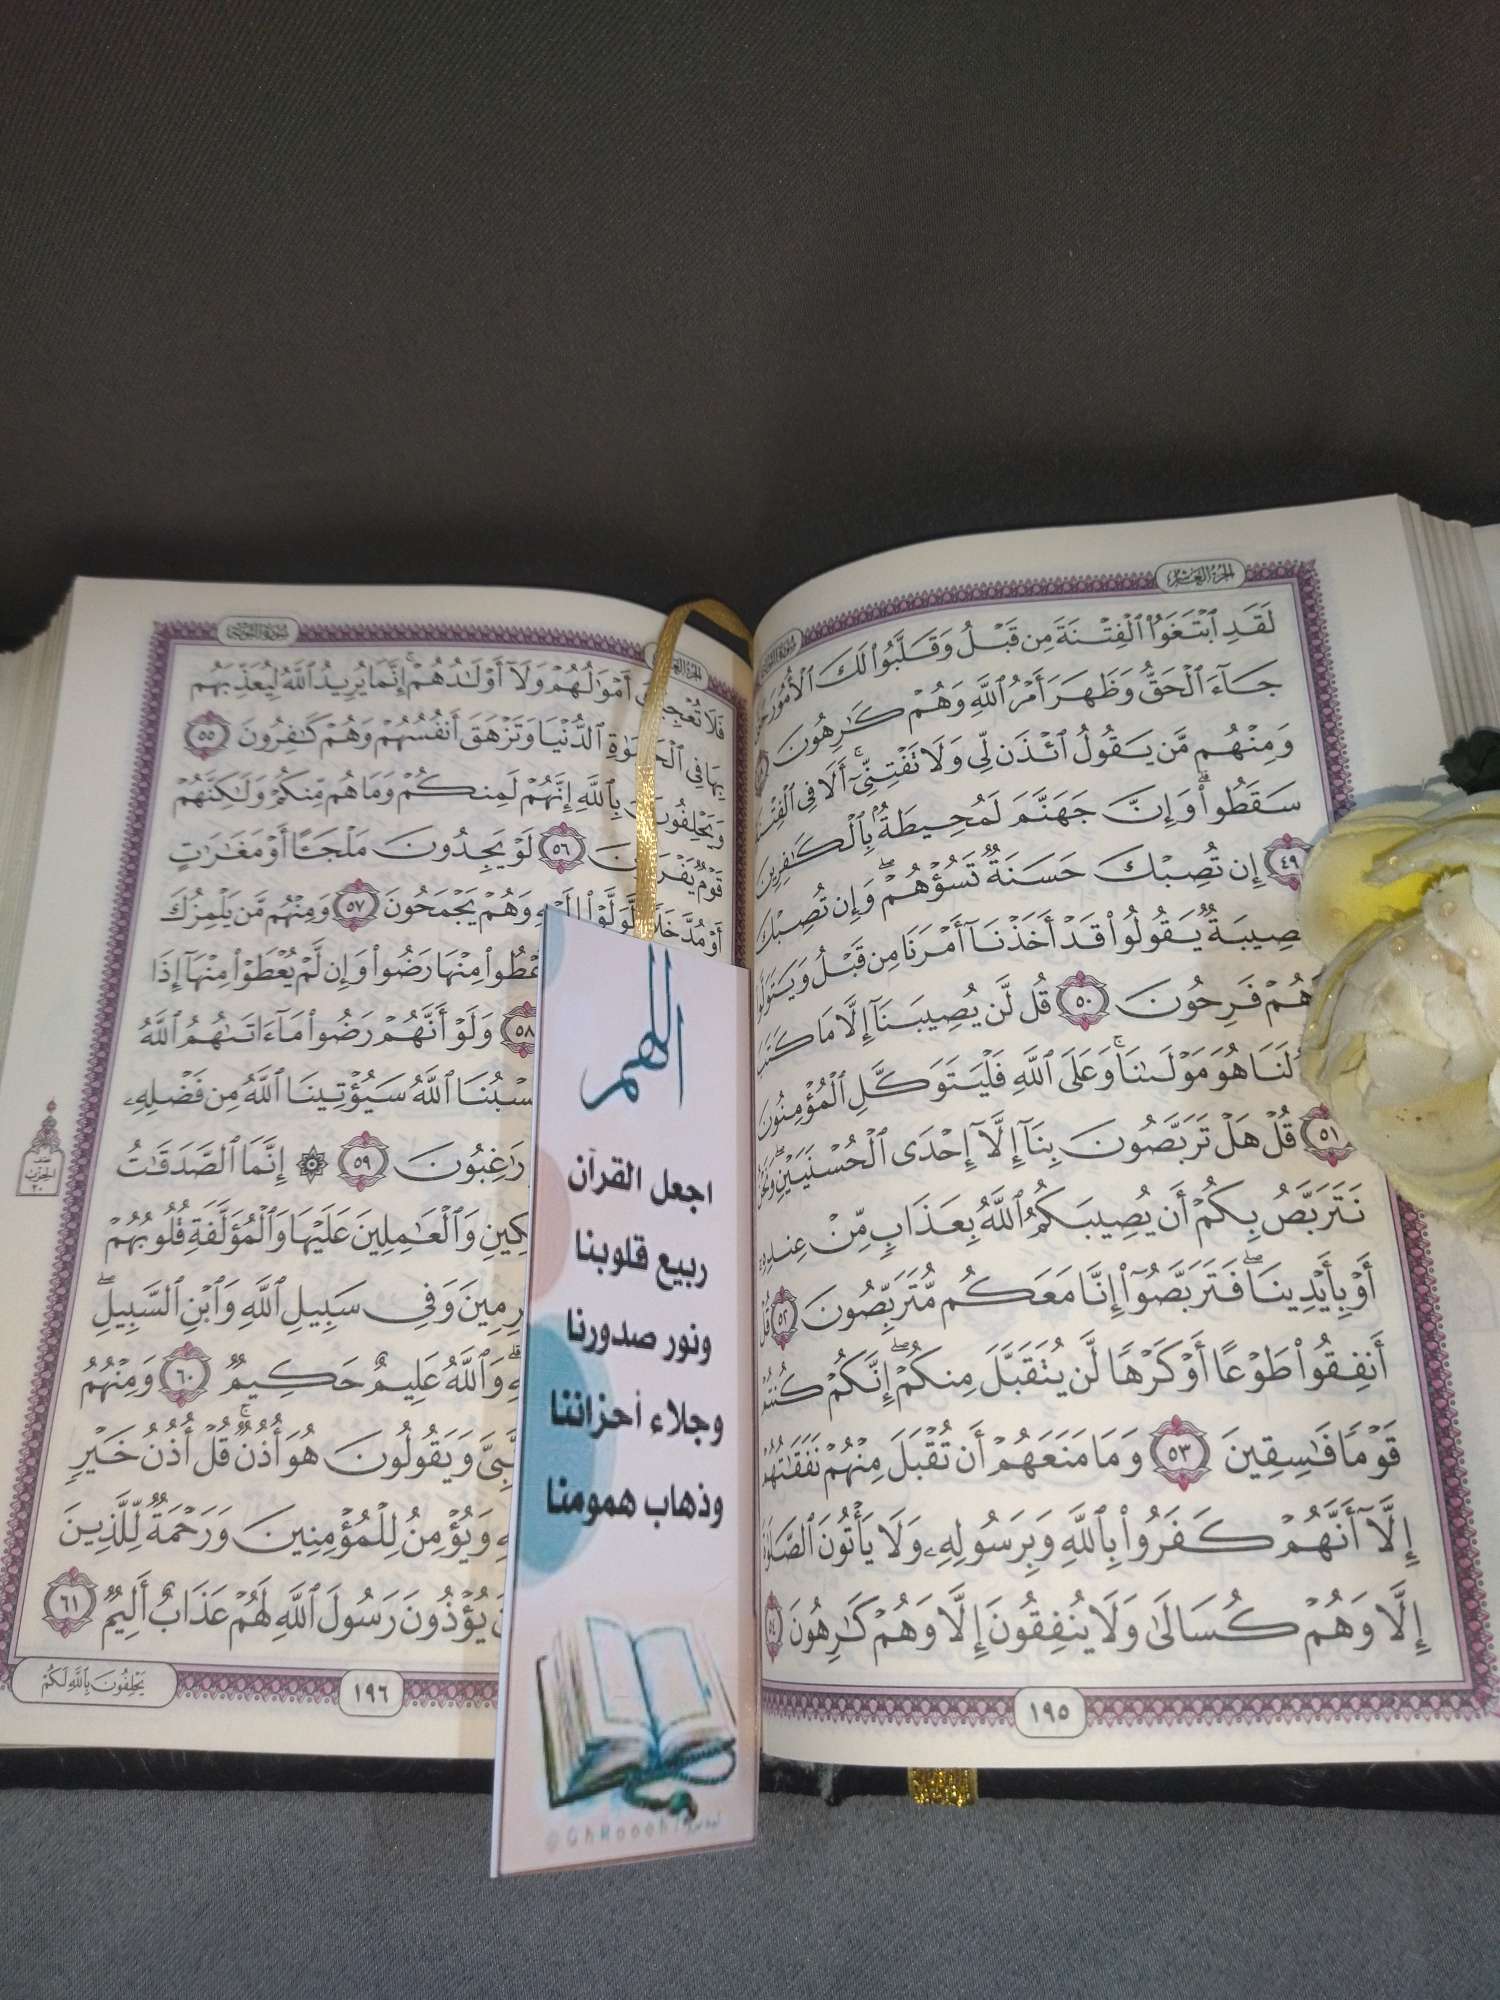 الجزء العاشر
سورة التوبة
لَقَدِ ٱبْتَغَوُا۟ ٱلْفِتْنَةَ مِن قَبْلُ وَقَلَّبُوا۟ لَكَ ٱلْأُمُورَ
جَآءَ ٱلْحَقُّ وَظَهَرَ أَمْرُ ٱللَّهِ وَهُمْ كَٰرِهُونَ
وَمِنْهُم مَّن يَقُولُ ٱئْذَن لِّى وَلَا تَفْتِنِّىٓ ۚ أَلَا فِى
سَقَطُوا۟ ۗ وَإِنَّ جَهَنَّمَ لَمُحِيطَةٌۢ بِٱلْكَٰفِرِينَ
٤٩ إِن تُصِبْكَ حَسَنَةٌ تَسُؤْهُمْ ۖ وَإِن تُصِبْكَ
يَقُولُوا۟ قَدْ أَخَذْنَآ أَمْرَنَا مِن قَبْلُ
فَرِحُونَ ٥٠ قُل لَّن يُصِيبَنَآ إِلَّا مَا
لَنَا هُوَ مَوْلَىٰنَا ۚ وَعَلَى ٱللَّهِ فَلْيَتَوَكَّلِ ٱلْمُؤْمِنُونَ
٥١ قُلْ هَلْ تَرَبَّصُونَ بِنَآ إِلَّآ إِحْدَى ٱلْحُسْنَيَيْنِ ۖ
نَتَرَبَّصُ بِكُمْ أَن يُصِيبَكُمُ ٱللَّهُ بِعَذَابٍ مِّنْ عِندِهِۦٓ
أَوْ بِأَيْدِينَا ۖ فَتَرَبَّصُوٓا۟ إِنَّا مَعَكُم مُّتَرَبِّصُونَ ٥٢ قُلْ
أَنفِقُوا۟ طَوْعًا أَوْ كَرْهًا لَّن يُتَقَبَّلَ مِنكُمْ ۖ إِنَّكُمْ كُنتُمْ
قَوْمًا فَٰسِقِينَ ٥٣ وَمَا مَنَعَهُمْ أَن تُقْبَلَ مِنْهُمْ نَفَقَٰتُهُمْ
إِلَّآ أَنَّهُمْ كَفَرُوا۟ بِٱللَّهِ وَبِرَسُولِهِۦ وَلَا يَأْتُونَ ٱلصَّلَوٰةَ
إِلَّا وَهُمْ كُسَالَىٰ وَلَا يُنفِقُونَ إِلَّا وَهُمْ كَٰرِهُونَ ٥٤
١٩٥
الجزء العاشر
سورة التوبة
فَلَا تُعْجِبْكَ أَمْوَٰلُهُمْ وَلَآ أَوْلَٰدُهُمْ ۚ إِنَّمَا يُرِيدُ ٱللَّهُ لِيُعَذِّبَهُم
بِهَا فِى ٱلْحَيَوٰةِ ٱلدُّنْيَا وَتَزْهَقَ أَنفُسُهُمْ وَهُمْ كَٰفِرُونَ ٥٥
وَيَحْلِفُونَ بِٱللَّهِ إِنَّهُمْ لَمِنكُمْ وَمَا هُم مِّنكُمْ وَلَٰكِنَّهُمْ
قَوْمٌ يَفْرَقُونَ ٥٦ لَوْ يَجِدُونَ مَلْجَـًٔا أَوْ مَغَٰرَٰتٍ
أَوْ مُدَّخَلًا لَّوَلَّوْا۟ إِلَيْهِ وَهُمْ يَجْمَحُونَ ٥٧ وَمِنْهُم مَّن يَلْمِزُكَ
مِنْهَا رَضُوا۟ وَإِن لَّمْ يُعْطَوْا۟ مِنْهَآ إِذَا
٥٨ وَلَوْ أَنَّهُمْ رَضُوا۟ مَآ ءَاتَىٰهُمُ ٱللَّهُ
ٱللَّهُ سَيُؤْتِينَا ٱللَّهُ مِن فَضْلِهِۦ
رَٰغِبُونَ ٥٩ ۞ إِنَّمَا ٱلصَّدَقَٰتُ
وَٱلْعَٰمِلِينَ عَلَيْهَا وَٱلْمُؤَلَّفَةِ قُلُوبُهُمْ
وَفِى سَبِيلِ ٱللَّهِ وَٱبْنِ ٱلسَّبِيلِ ۖ
وَٱللَّهُ عَلِيمٌ حَكِيمٌ ٦٠ وَمِنْهُمُ
وَيَقُولُونَ هُوَ أُذُنٌ ۚ قُلْ أُذُنُ خَيْرٍ
وَيُؤْمِنُ لِلْمُؤْمِنِينَ وَرَحْمَةٌ لِّلَّذِينَ
يُؤْذُونَ رَسُولَ ٱللَّهِ لَهُمْ عَذَابٌ أَلِيمٌ ٦١
نصف الحزب ٢٠
١٩٦
يَحْلِفُونَ بِٱللَّهِ لَكُمْ
اللهم
اجعل القرآن
ربيع قلوبنا
ونور صدورنا
وجلاء أحزاننا
وذهاب همومنا